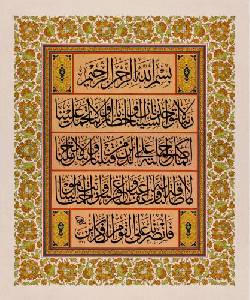 بسم الله الرحمن الرحيم
ربنا لا تؤاخذنا إن نسينا أو أخطأنا ربنا ولا تحمل علينا
إصرا كما حملته على الذين من قبلنا ربنا ولا تحملنا
ما لا طاقة لنا به واعف عنا واغفر لنا وارحمنا أنت مولانا
فانصرنا على القوم الكافرين